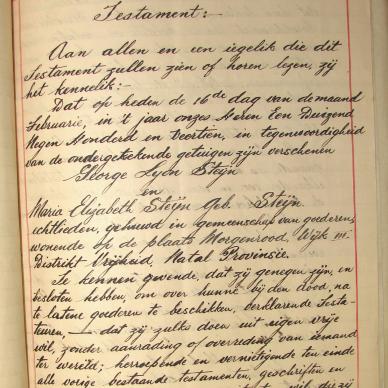 Testament:-
Aan allen en een iegelik die dit
Testament zullen zien of horen lezen, zij
het kennelik:-
Dat op heden de 16de dag van de maand
Februarie, in 't jaar onzes Heren Een Duizend
Negen Honderd en Veertien, in tegenwoordigheid
van de ondergetekende getuigen zijn verschenen
George Lyon Steijn
en
Maria Elizabeth Steijn Geb. Steijn,
echtlieden, gehuwd in gemeenschap van goederen,
wonende op de plaats Morgenrood, Wijk
Distrikt Vrijheid, Natal Provinsie.
Te kennen gevende, dat zij genegen zijn, en
besloten hebben, om over hunne bij den dood, na
te latene goederen te beschikken, verklarende Testa-
teuren, — dat zij zulks doen uit eigen vrije
wil, zonder aanrading of overreding van iemand
ter wereld; herroepende en vernietigende ten einde
alle vorige bestaande testamenten, geschriften en